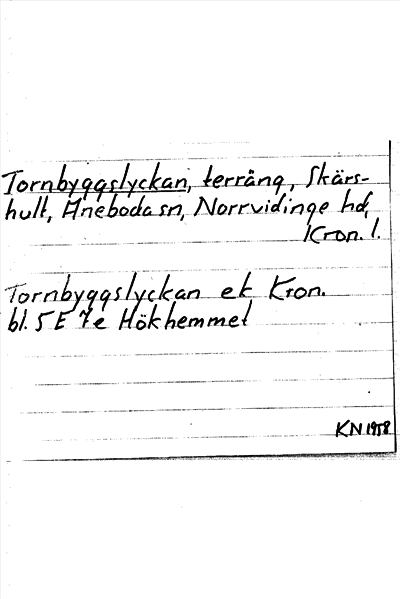 Tornbyggslyckan, terräng, Skärs-
hult, Aneboda sn, Norrvidinge hd,
Kron. l.
Tornbyggslyckan ek Kron.
bl. 5 E 7e Hökhemmet
KN 1958